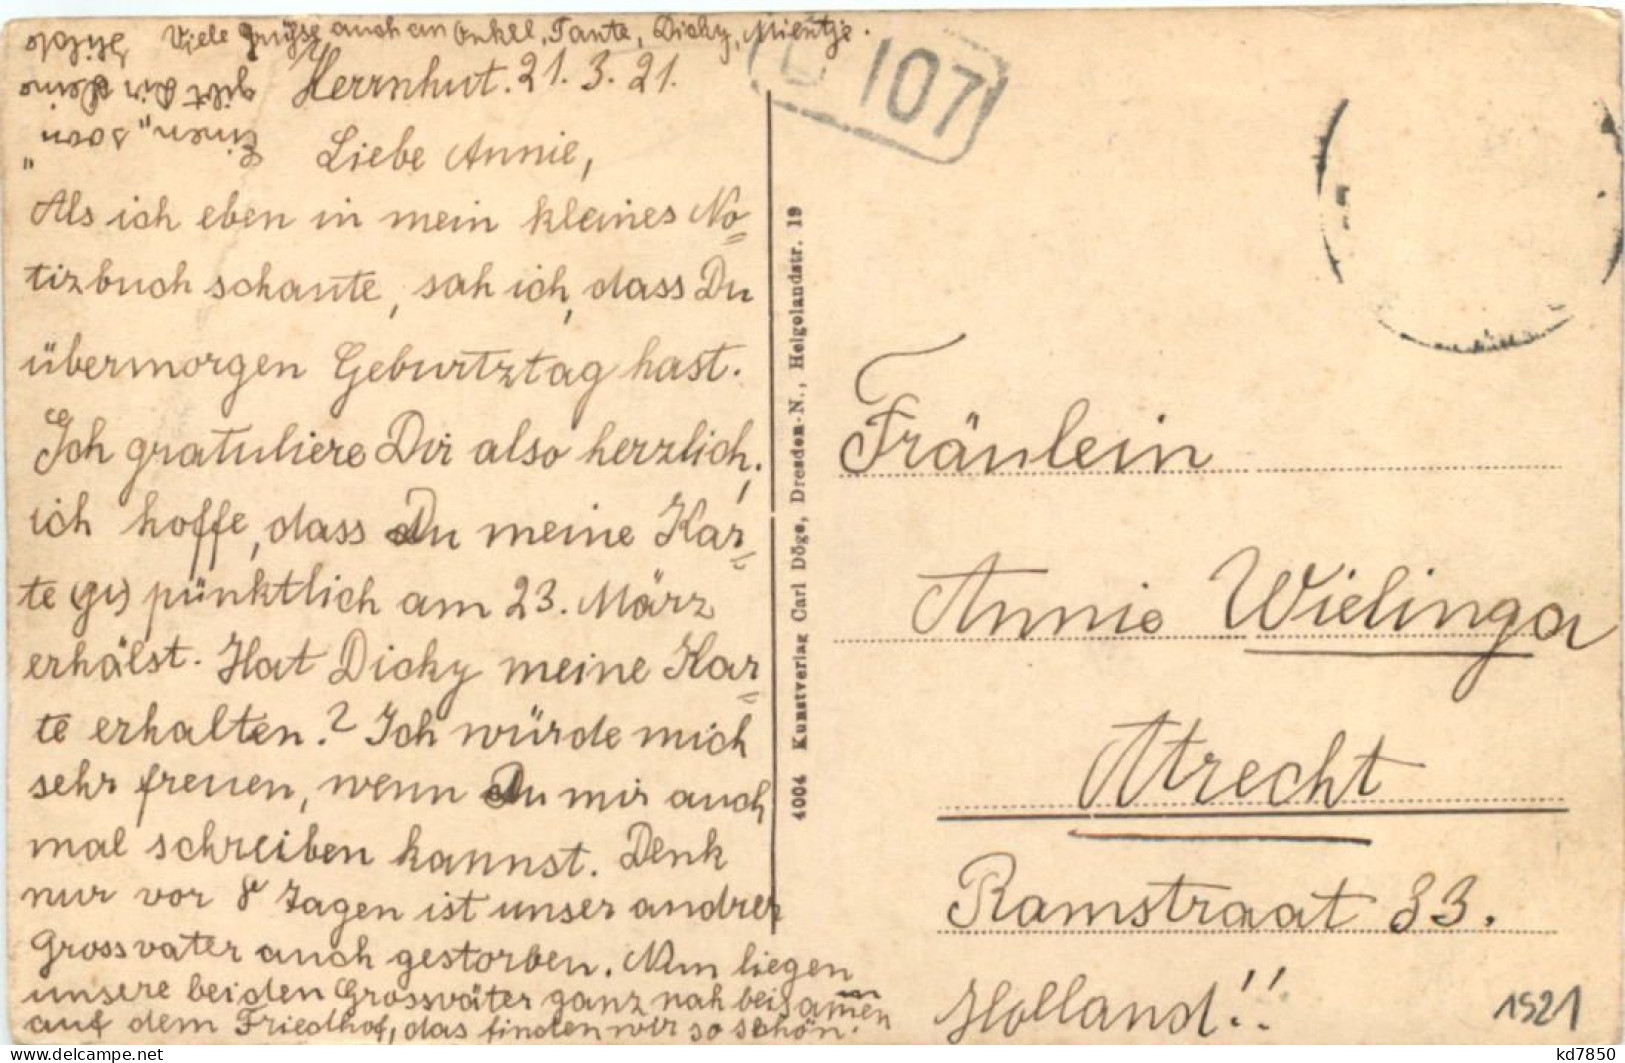 Viele Grüsse auch an Onkel, Tante, Dicky, Mientje.
Herrnhut. 21. 3. 21.
Liebe Annie,
Als ich eben in mein kleines No=
tizbuch schaute, sah ich, dass Du
übermorgen Geburtztag hast.
Ich gratuliere Dir also herzlich,
ich hoffe, dass Du meine Kar=
te (gs) pünktlich am 23. März
erhälst. Hat Dicky meine Kar=
te erhalten? Ich würde mich
sehr freuen, wenn Du mir auch
mal schreiben kannst. Denk
nur vor 8 Tagen ist unser andrer
Grossvater auch gestorben. Nun liegen
unsere beiden Grossväter ganz nah beisamen
auf dem Friedhof, das finden wir so schön.
Einen "soen"
gibt Dir Deine
107
4004 Kunstverlag Carl Döge, Dresden-N., Helgolandstr. 19
Fräulein
Annie Wielinga
Utrecht
Ramstraat 33.
Holland!!
1921
kd7850